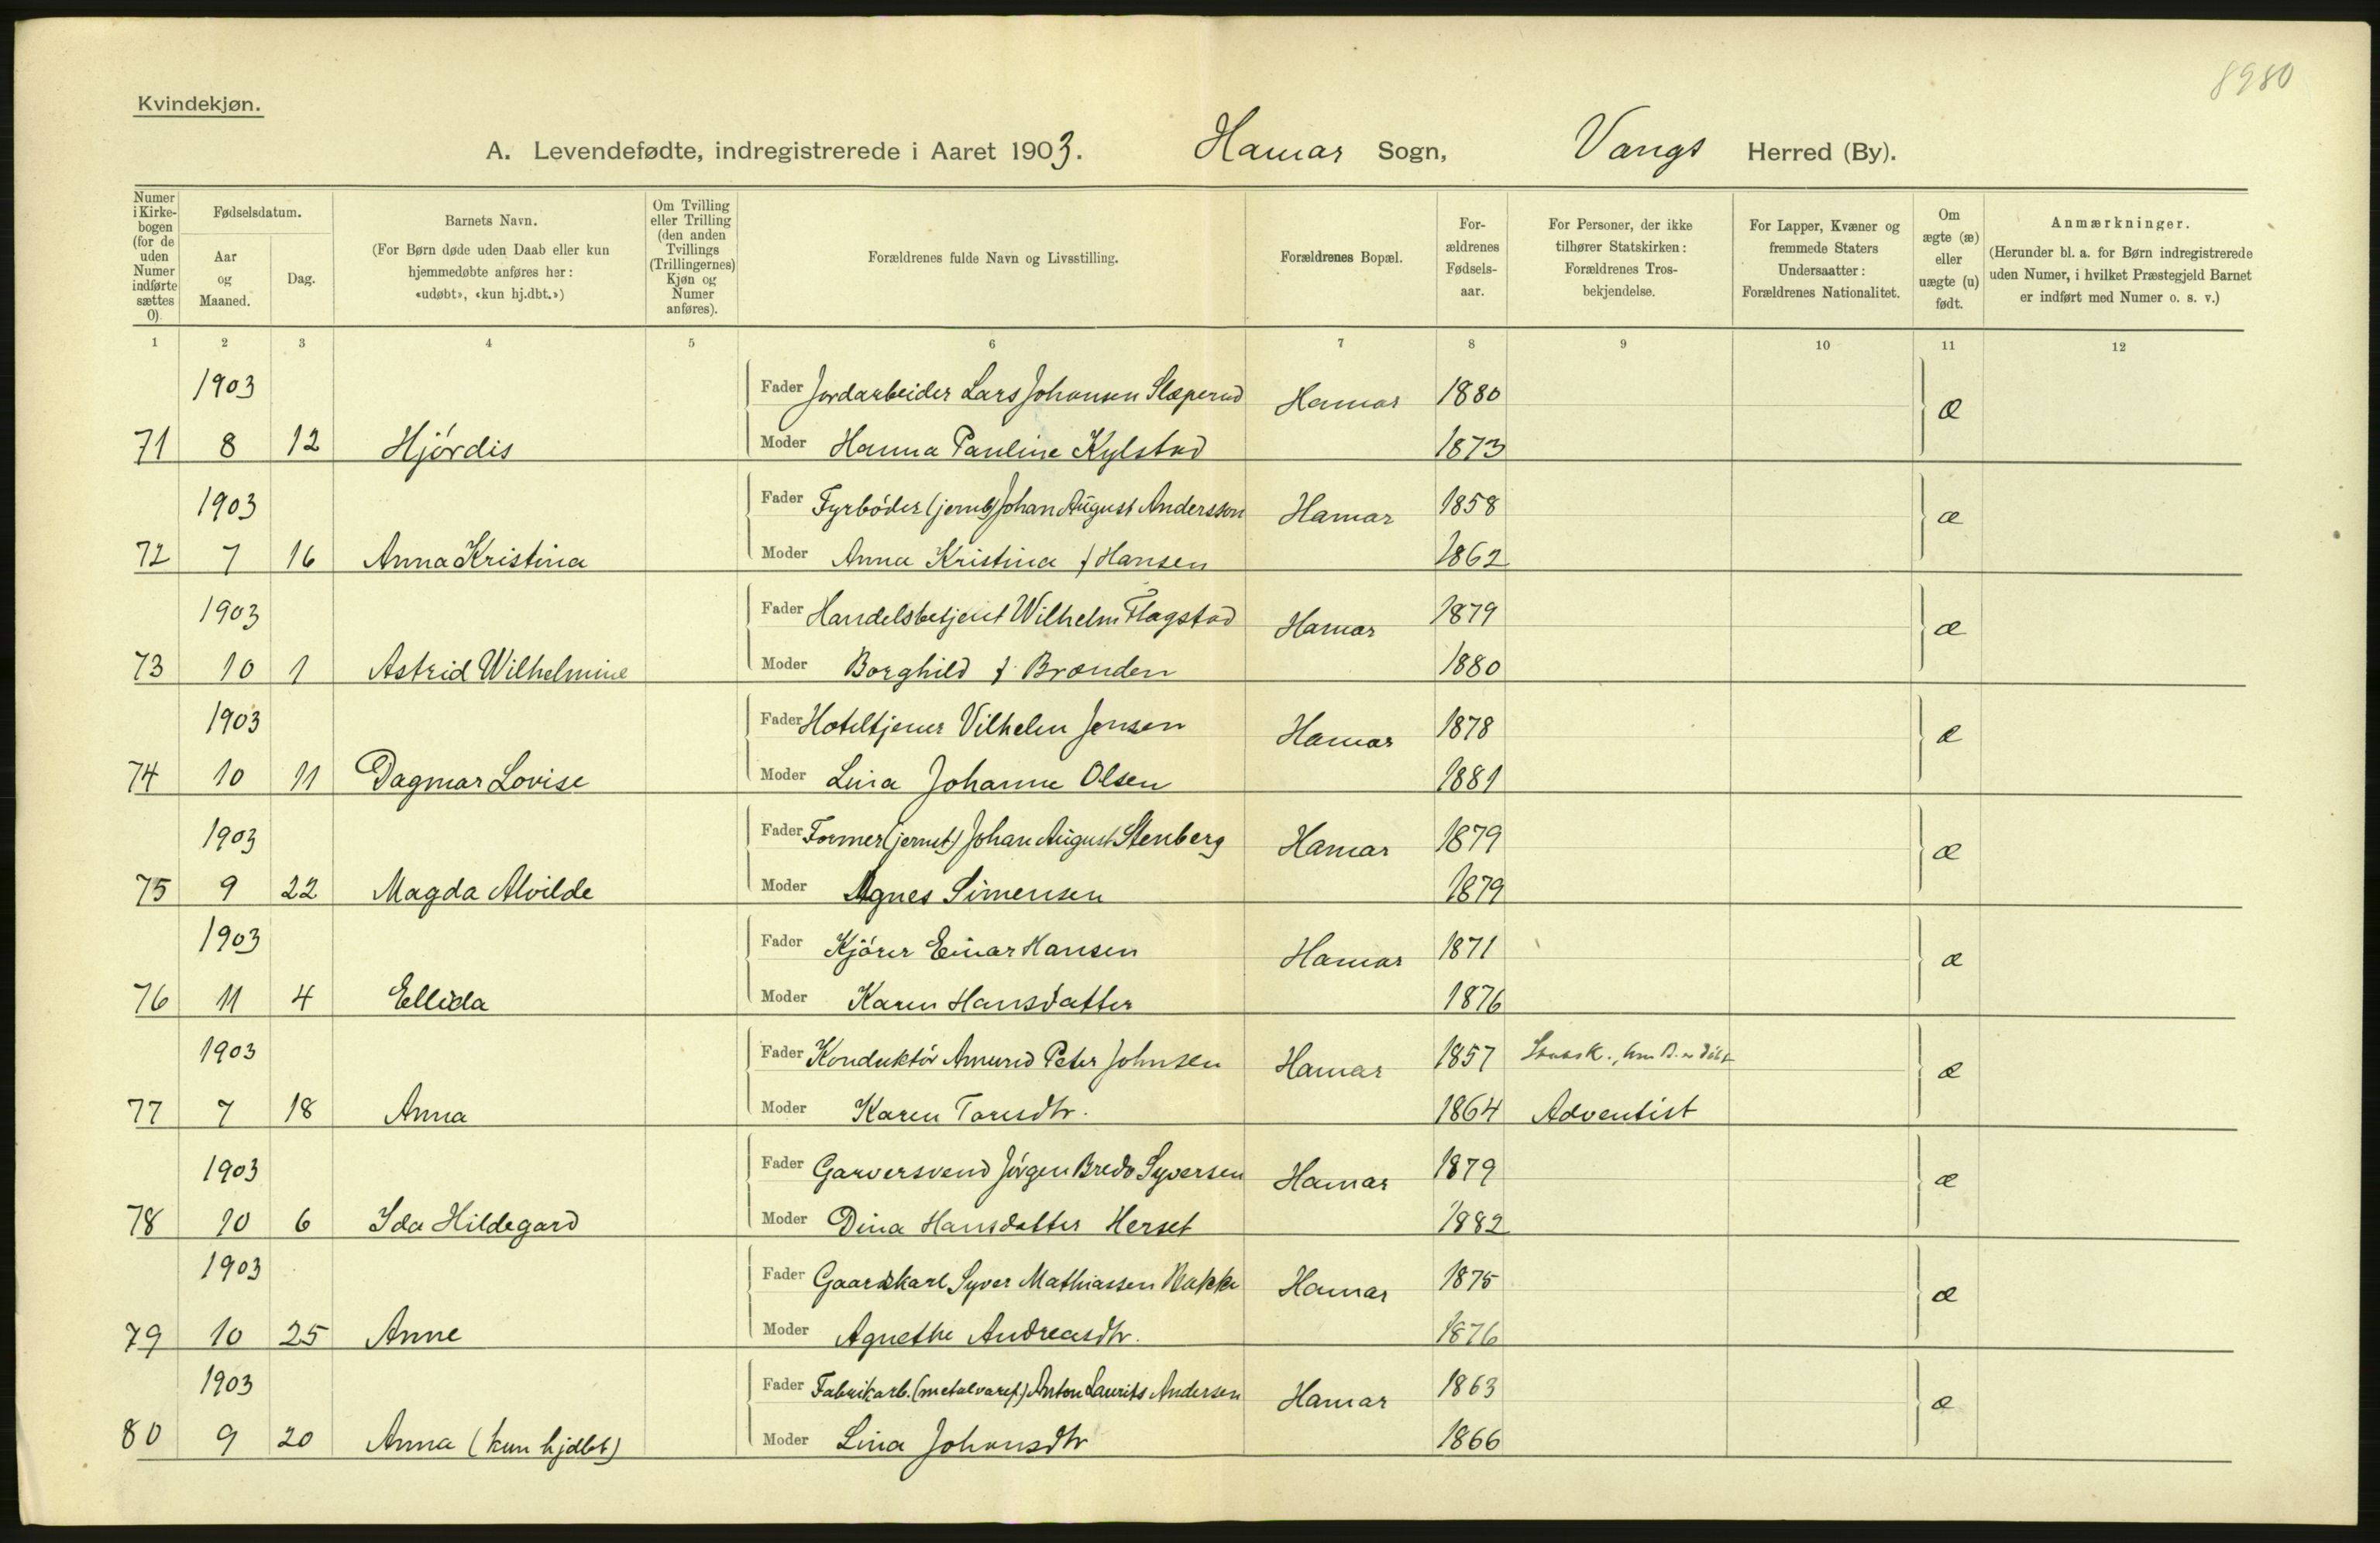 8980
Kvindekjøn.
A. Levendefødte, indregistrerede i Aaret 1903. Hamar Sogn, Vangs Herred (By).
Numer i Kirkebogen (for de uden Numer indførte sættes 0)
Fødselsdatum.
Aar og Maaned.
Dag.
Barnets Navn.
(For Børn døde uden Daab eller kun hjemmedøbte anføres her: «udøbt», «kun hj.dbt.»)
Om Tvilling eller Trilling (den anden Tvillings (Trillingernes) Kjøn og Numer anføres).
Forældrenes fulde Navn og Livsstilling.
Forældrenes Bopæl.
Forældrenes Fødselsaar.
For Personer, der ikke tilhører Statskirken: Forældrenes Trosbekjendelse.
For Lapper, Kvæner og fremmede Staters Undersaatter: Forældrenes Nationalitet.
Om ægte (æ) eller uægte (u) født.
Anmærkninger.
(Herunder bl. a. for Børn indregistrerede uden Numer, i hvilket Præstegjeld Barnet er indført med Numer o. s. v.)
1 2 3 4 5 6 7 8 9 10 11 12
1903 Fader Jordarbeider Lars Johansen Slæperud Hamar 1880 æ
71 8 12 Hjórdis Moder Hanna Pauline Kylstad 1873
1903 Fader Fyrbóder (jernb) Johan August Andersson Hamar 1858 æ
72 7 16 Anna Kristina Moder Anna Kristina f Hansen 1862
1903 Fader Handelsbetjent Wilhelm Flagstad Hamar 1879 æ
73 10 1 Astrid Wilhelmine Moder Borghild f. Brænden 1880
1903 Fader Hoteltjener Vilhelm Jensen Hamar 1878 æ
74 10 11 Dagmar Lovise Moder Lina Johanne Olsen 1881
1903 Fader Former (jernst) Johan August Stenberg Hamar 1879 æ
75 9 22 Magda Alvilde Moder Agnes Simensen 1879
1903 Fader Kjórer Einar Hansen Hamar 1871 æ
76 11 4 Ellida Moder Karen Hansdatter 1876
1903 Fader Konduktór Amund Peter Johnsen Hamar 1857 æ
77 7 18 Anna Moder Karen Toresdtr. 1864 Adventist
1903 Fader Garversvend Jórgen Bredo Syversen Hamar 1879 æ
78 10 6 Ida Hildegard Moder Dina Hansdatter Herset 1882
1903 Fader Gaardskarl Syver Mathiassen Bakke Hamar 1875 æ
79 10 25 Anne Moder Agnethe Andreasdtr. 1876
1903 Fader Fabrikarb. (metalvaref) Anton Laurits Andersen Hamar 1863 æ
80 9 20 Anna (kun hjdbt) Moder Lina Johansdtr 1866